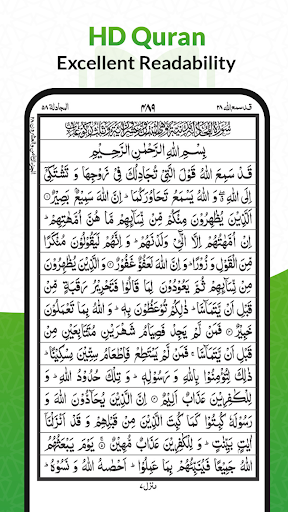 HD Quran
Excellent Readability
المجادلة ٥٨ ٤٨٩ قد سمع الله ٢٨
بِسْمِ اللهِ الرَّحْمٰنِ الرَّحِيْمِ
قَدْ سَمِعَ اللهُ قَوْلَ الَّتِيْ تُجَادِلُكَ فِيْ زَوْجِهَا وَ تَشْتَكِيْۤ
اِلَى اللهِ ۖ وَ اللهُ يَسْمَعُ تَحَاوُرَكُمَا ؕ اِنَّ اللهَ سَمِيْعٌۢ بَصِيْرٌ ۝
اَلَّذِيْنَ يُظٰهِرُوْنَ مِنْكُمْ مِّنْ نِّسَآىِٕهِمْ مَّا هُنَّ اُمَّهٰتِهِمْ ؕ
اِنْ اُمَّهٰتُهُمْ اِلَّا الّٰٓـِٔيْ وَلَدْنَهُمْ ؕ وَ اِنَّهُمْ لَيَقُوْلُوْنَ مُنْكَرًا
مِّنَ الْقَوْلِ وَ زُوْرًا ؕ وَ اِنَّ اللهَ لَعَفُوٌّ غَفُوْرٌ ۝ وَ الَّذِيْنَ يُظٰهِرُوْنَ
مِنْ نِّسَآىِٕهِمْ ثُمَّ يَعُوْدُوْنَ لِمَا قَالُوْا فَتَحْرِيْرُ رَقَبَةٍ مِّنْ
قَبْلِ اَنْ يَّتَمَآسَّا ؕ ذٰلِكُمْ تُوْعَظُوْنَ بِهٖ ؕ وَ اللهُ بِمَا تَعْمَلُوْنَ
خَبِيْرٌ ۝ فَمَنْ لَّمْ يَجِدْ فَصِيَامُ شَهْرَيْنِ مُتَتَابِعَيْنِ مِنْ
قَبْلِ اَنْ يَّتَمَآسَّا ۚ فَمَنْ لَّمْ يَسْتَطِعْ فَاِطْعَامُ سِتِّيْنَ مِسْكِيْنًا ؕ
ذٰلِكَ لِتُؤْمِنُوْا بِاللهِ وَ رَسُوْلِهٖ ؕ وَ تِلْكَ حُدُوْدُ اللهِ ؕ وَ
لِلْكٰفِرِيْنَ عَذَابٌ اَلِيْمٌ ۝ اِنَّ الَّذِيْنَ يُحَآدُّوْنَ اللهَ وَ
رَسُوْلَهٗ كُبِتُوْا كَمَا كُبِتَ الَّذِيْنَ مِنْ قَبْلِهِمْ وَ قَدْ اَنْزَلْنَاۤ
اٰيٰتٍۭ بَيِّنٰتٍ ؕ وَ لِلْكٰفِرِيْنَ عَذَابٌ مُّهِيْنٌ ۝ يَوْمَ يَبْعَثُهُمُ
اللهُ جَمِيْعًا فَيُنَبِّئُهُمْ بِمَا عَمِلُوْا ؕ اَحْصٰىهُ اللهُ وَ نَسُوْهُ ؕ
منزل ٧